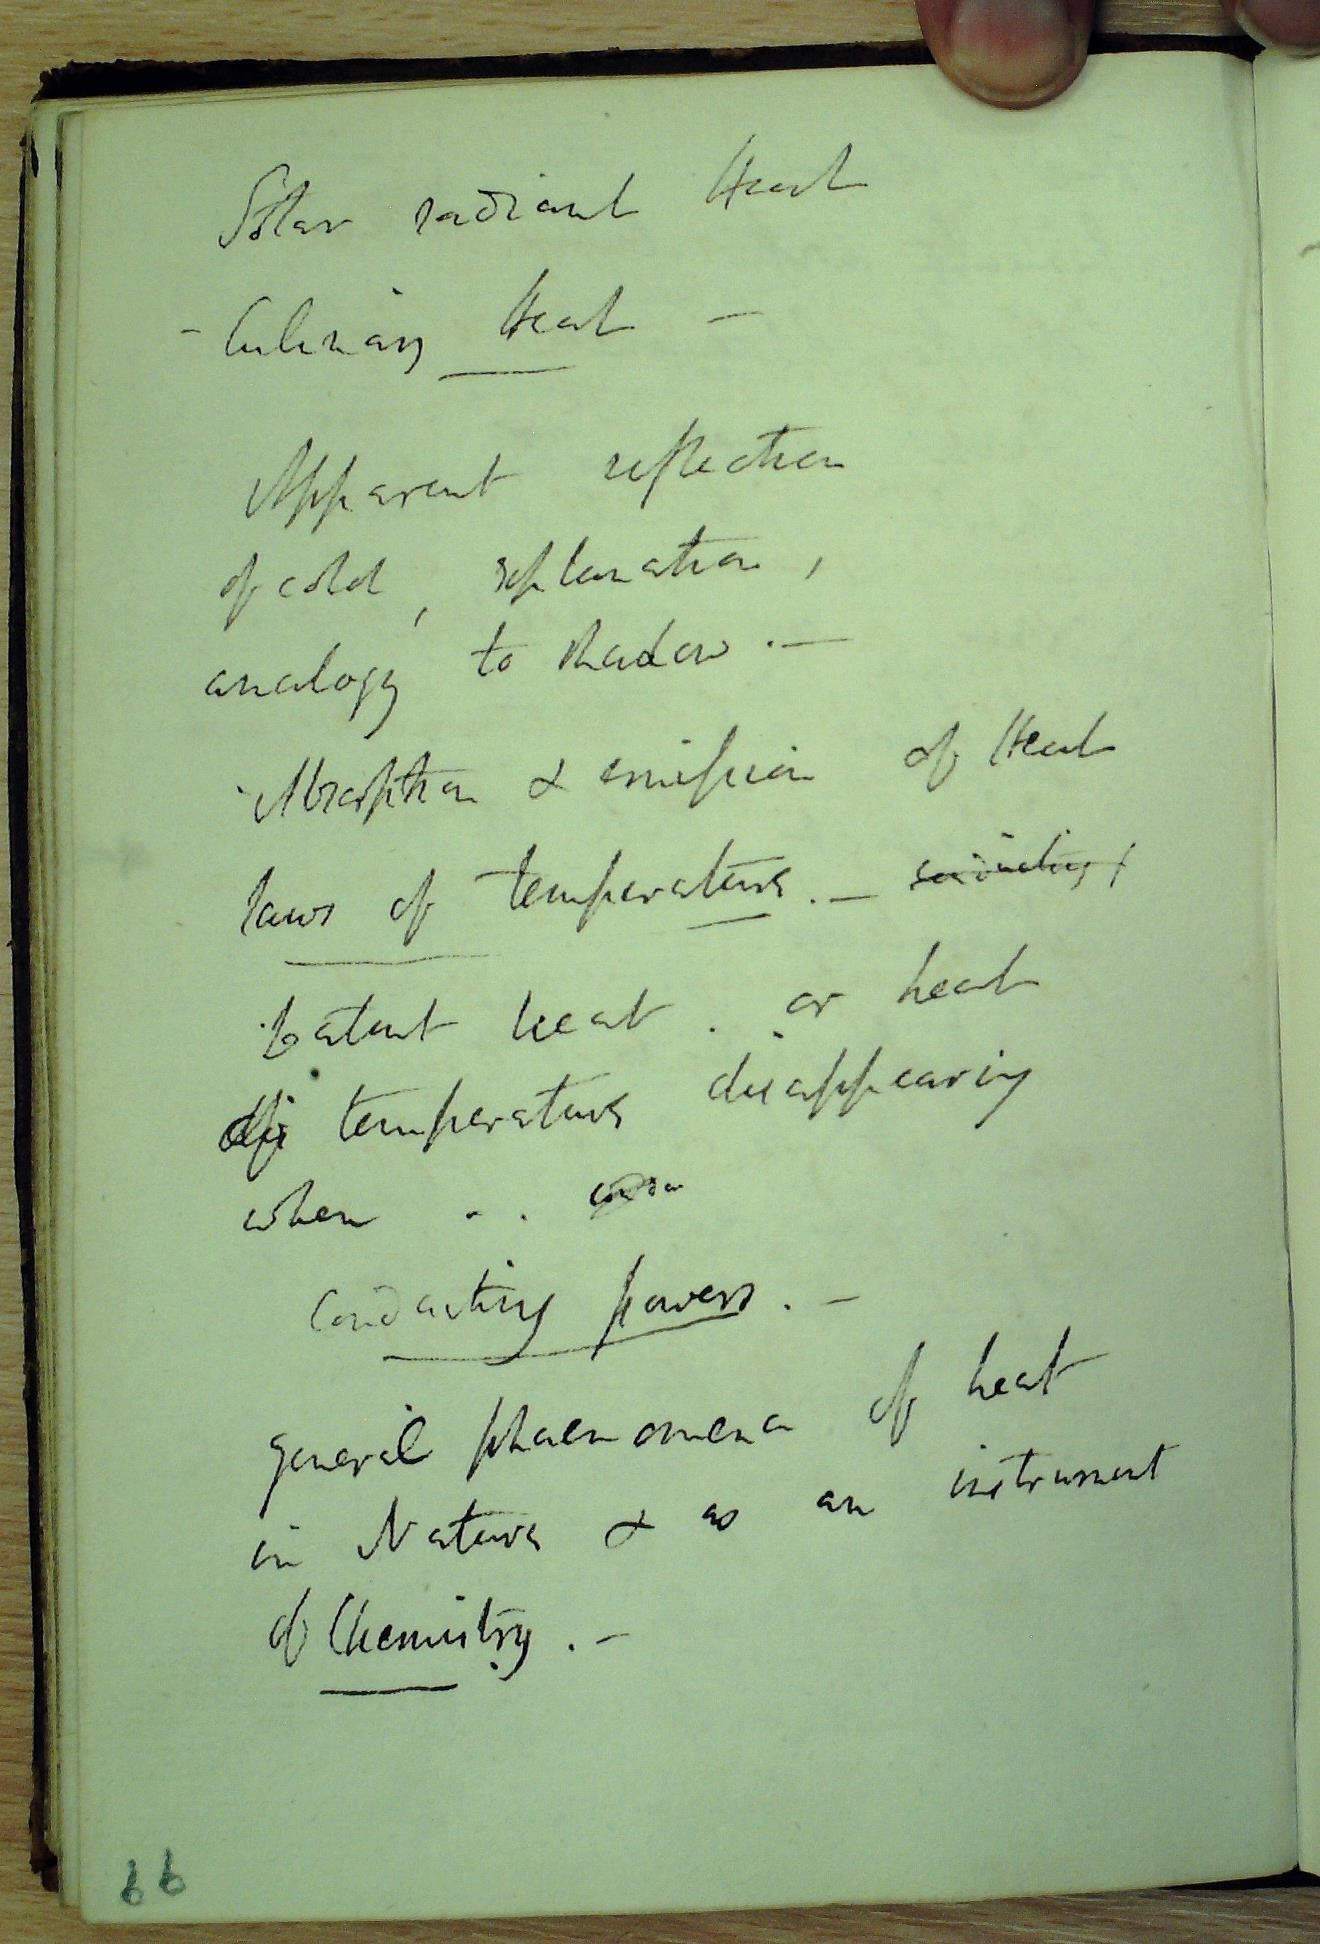 Solar radiant Heat
- Culinary Heat -
Apparent reflection
of cold, explanation,
analogy to shadow. -
Absorption & emission of Heat
laws of temperature. -
Latent heat. or heat
of temperature disappearing
when . .
Conducting powers. -
general phaenomena of heat
in Nature & as an instrument
of Chemistry. -
66